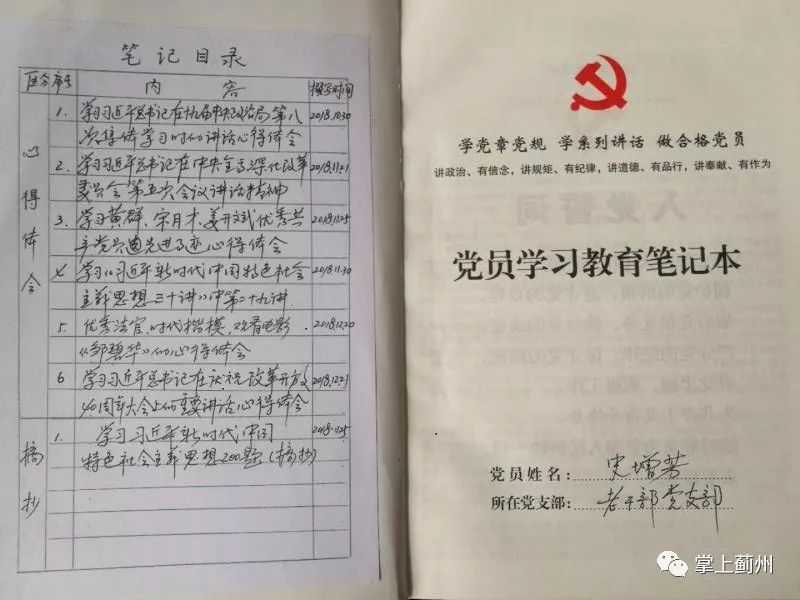 笔记目录
区分 序号 内容 撰写时间
心得体会
1. 学习习近平总书记在十九届中央政治局第八 2018.10.30
次集体学习时的讲话心得体会
2. 学习习近平总书记在中央全面深化改革 2018.11.21
委员会第五次会议讲话精神
3. 学习黄群、宋月才、姜开斌优秀共 2018.11.25
产党员先进事迹心得体会
4. 学习《习近平新时代中国特色社会 2018.11.30
主义思想三十讲》中第二十九讲
5. 优秀法官、时代楷模、观看电影 2018.12.20
《邹碧华》的心得体会
6 学习习近平总书记在庆祝改革开放
40周年大会上的重要讲话心得体会
摘抄
1. 学习习近平新时代中国
特色社会主义思想200题(摘抄)
学党章党规 学系列讲话 做合格党员
讲政治、有信念,讲规矩、有纪律,讲道德、有品行,讲奉献、有作为
党员学习教育笔记本
党员姓名:史增芳
所在党支部:老干部党支部
掌上蓟州